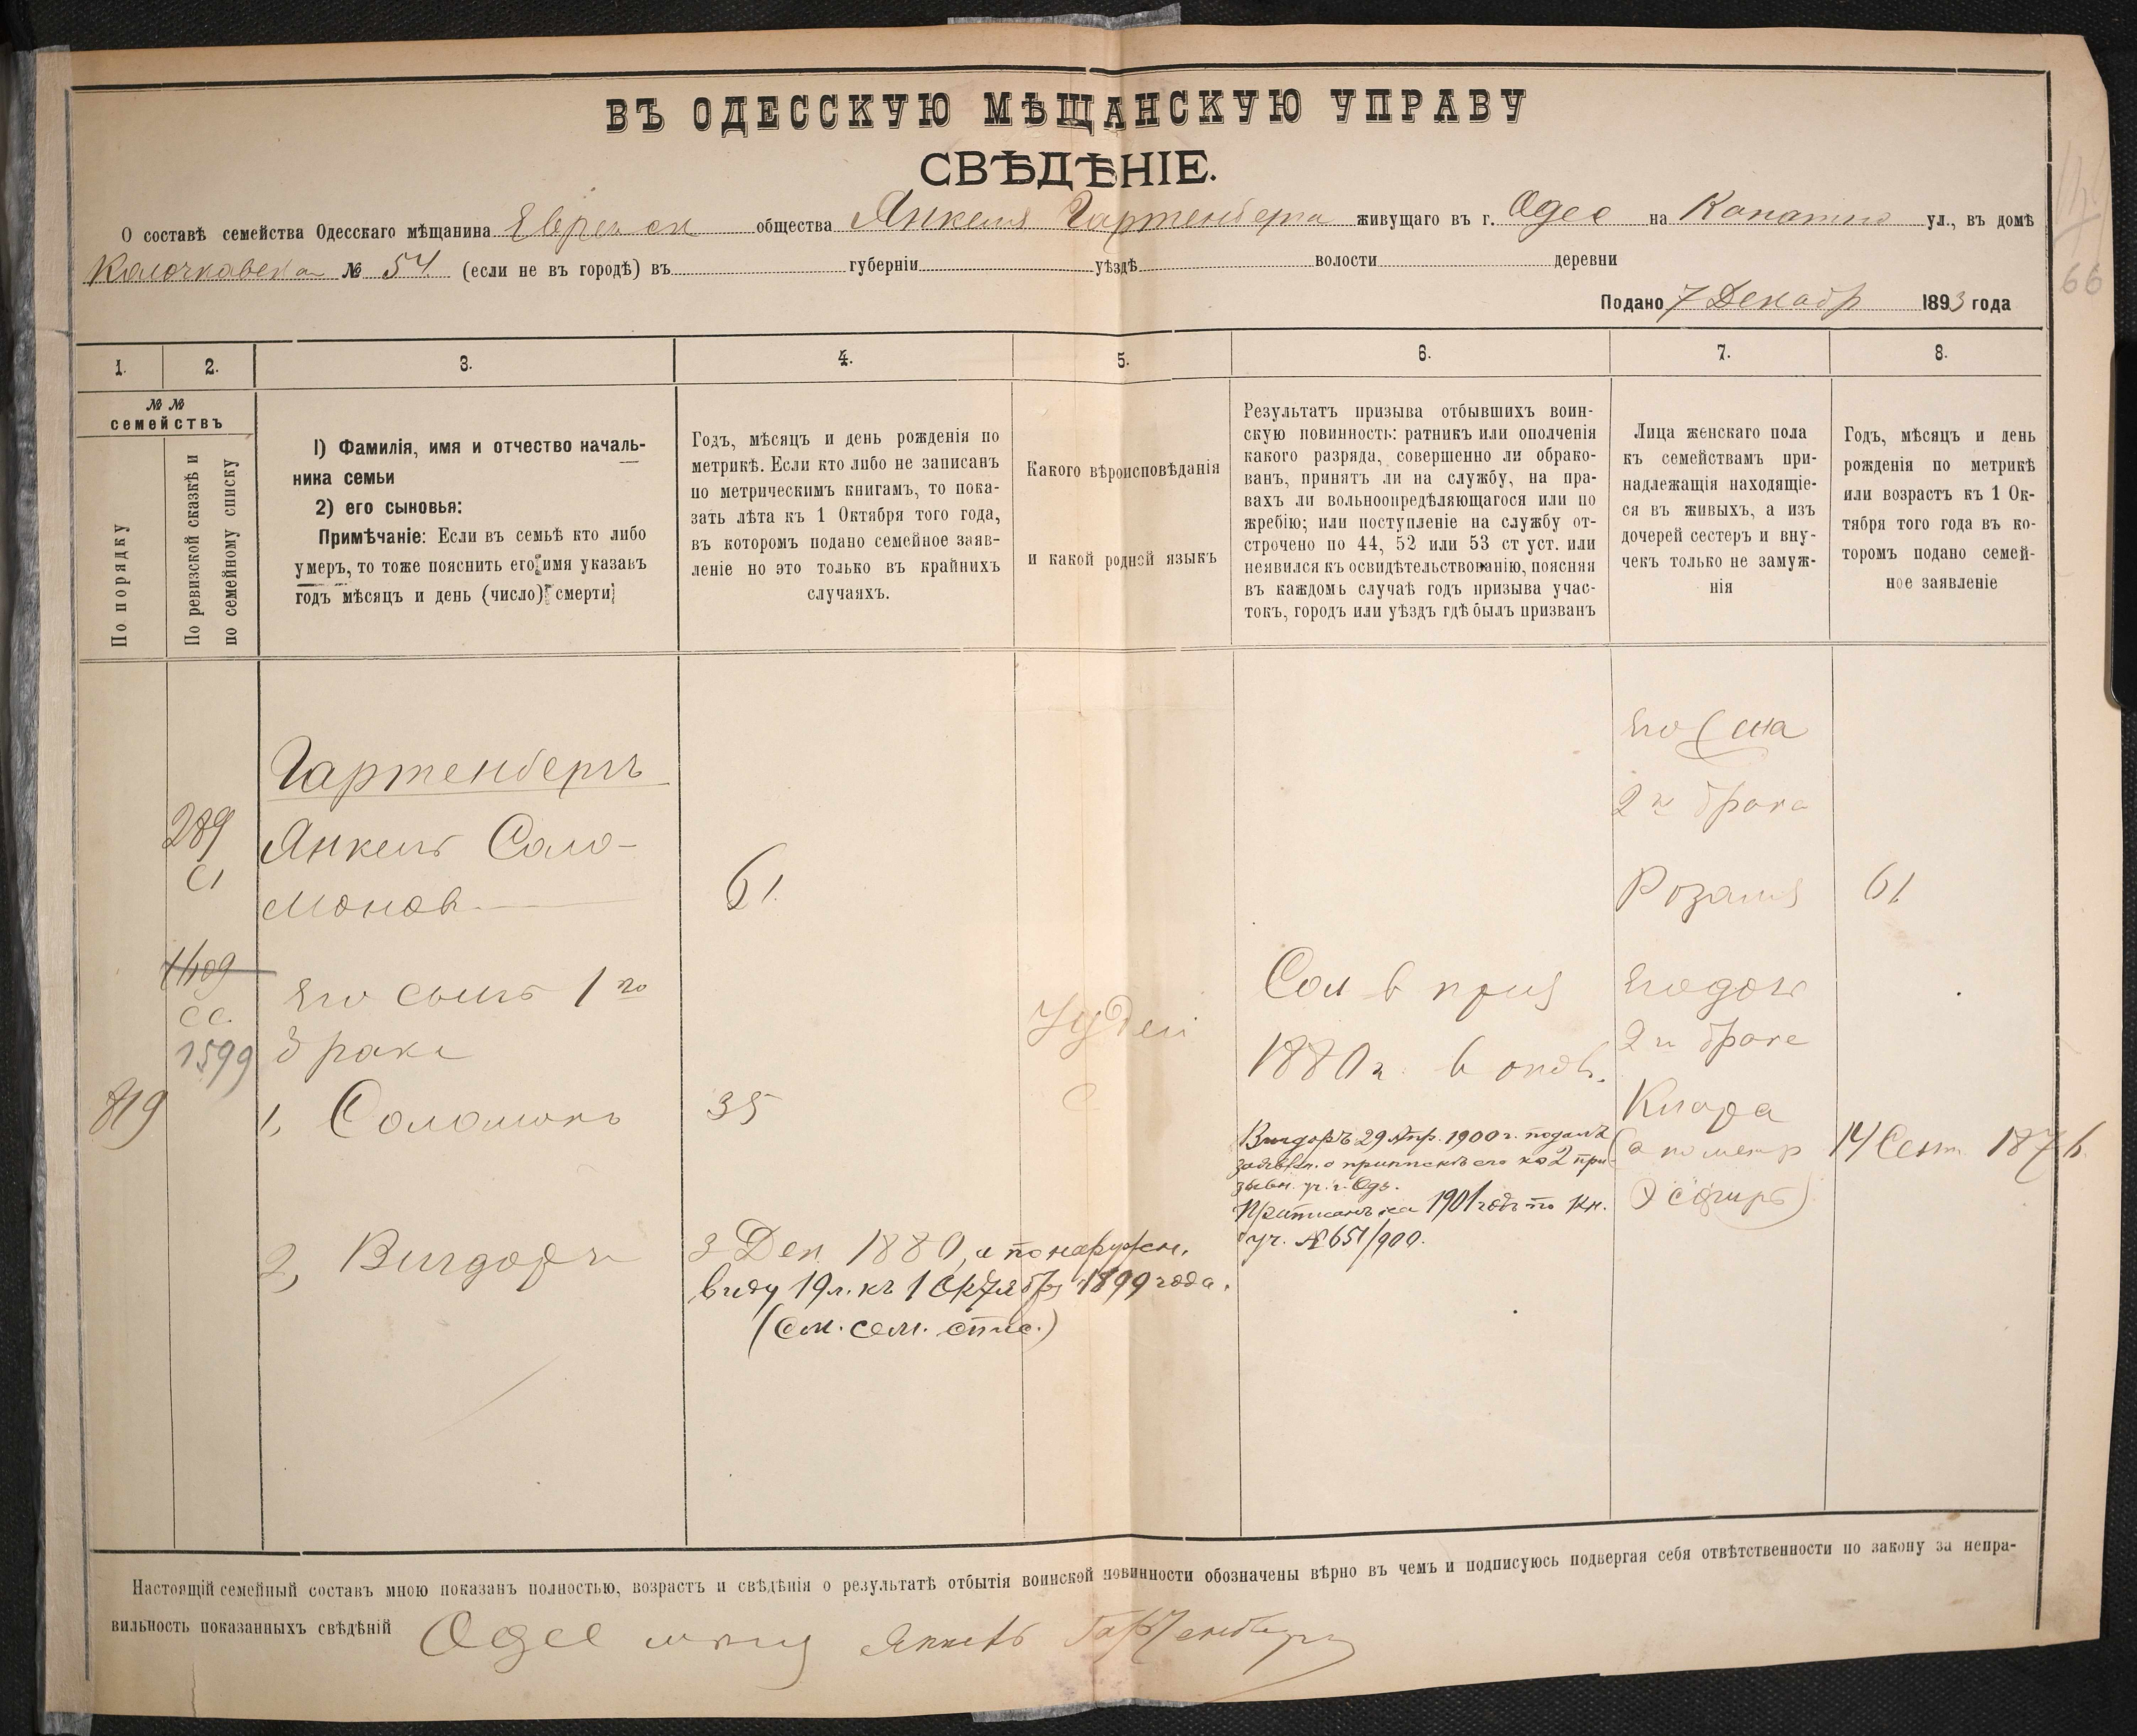 ВЪ ОДЕССКУЮ МѢЩАНСКУЮ УПРАВУ
СВѢДѢНІЕ.
О составѣ семейства Одесскаго мѣщанина Еврейск общества Янкеля Гартенберга живущаго въ г. Одес на Канатно ул., въ домѣ
№ 54 (если не въ городѣ) въ губерніи уѣздѣ волости деревни
Подано 7 Декабр 1893 года
66
1. 2. 3. 4. 5. 6. 7. 8.
№ №
семействъ
По порядку
По ревизской сказкѣ и
по семейному списку
I) Фамилія, имя и отчество началь-
ника семьи
2) его сыновья:
Примѣчаніе: Если въ семьѣ кто либо
умеръ, то тоже пояснить его имя указавъ
годъ мѣсяцъ и день (число) смерти
Годъ, мѣсяцъ и день рожденія по
метрикѣ. Если кто либо не записанъ
по метрическимъ книгамъ, то пока-
зать лѣта къ 1 Октября того года,
въ которомъ подано семейное заяв-
леніе но это только въ крайнихъ
случаяхъ.
Какого вѣроисповѣданія
и какой родной языкъ
Результатъ призыва отбывшихъ воин-
скую повинность: ратникъ или ополченія
какого разряда, совершенно ли обрако-
ванъ, принятъ ли на службу, на пра-
вахъ ли вольноопредѣляющагося или по
жребію; или поступленіе на службу от-
строчено по 44, 52 или 53 ст уст. или
неявился къ освидѣтельствованію, поясняя
въ каждомъ случаѣ годъ призыва учас-
токъ, городъ или уѣздъ гдѣ былъ призванъ
Лица женскаго пола
къ семействамъ при-
надлежащія находящіе-
ся въ живыхъ, а изъ
дочерей сестеръ и вну-
чекъ только не замуж-
нія
Годъ, мѣсяцъ и день
рожденія по метрикѣ
или возрастъ къ 1 Ок-
тября того года въ ко-
торомъ подано семей-
ное заявленіе
289
Гартенбергъ
Янкель Соло-
монов
61
Его
2 брака
Розалия 61
1409
1599
Его сынъ 1го
брака
819
1, Соломонъ 35
Иудей
Сол в приз
1880 г.
Вигдоръ 29 Апр. 1900 г. подалъ
заявлен. о припискѣ его ко 2 при-
зывн. уч. г. Одs.
Приписанъ на 1901 годъ по кн.
уч. №651/900.
Его доч
2 браке
Клара
(а по метр
Эсфирь)
14 Сент 1876
2, Вигдоръ
3 Дек 1880, а по наружн.
виду 19 л. къ 1 Октября 1899 года.
(См. сем. спис.)
Настоящій семейный составъ мною показанъ полностью, возрастъ и свѣдѣнія о результатѣ отбытія воинской повинности обозначены вѣрно въ чемъ и подписуюсь подвергая себя отвѣтственности по закону за непра-
вильность показанныхъ свѣдѣній Одес Гартенберг